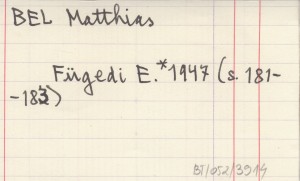 BEL Matthias
Fügedi E.*1947 (s. 181-
-183)
BJ/052/3914